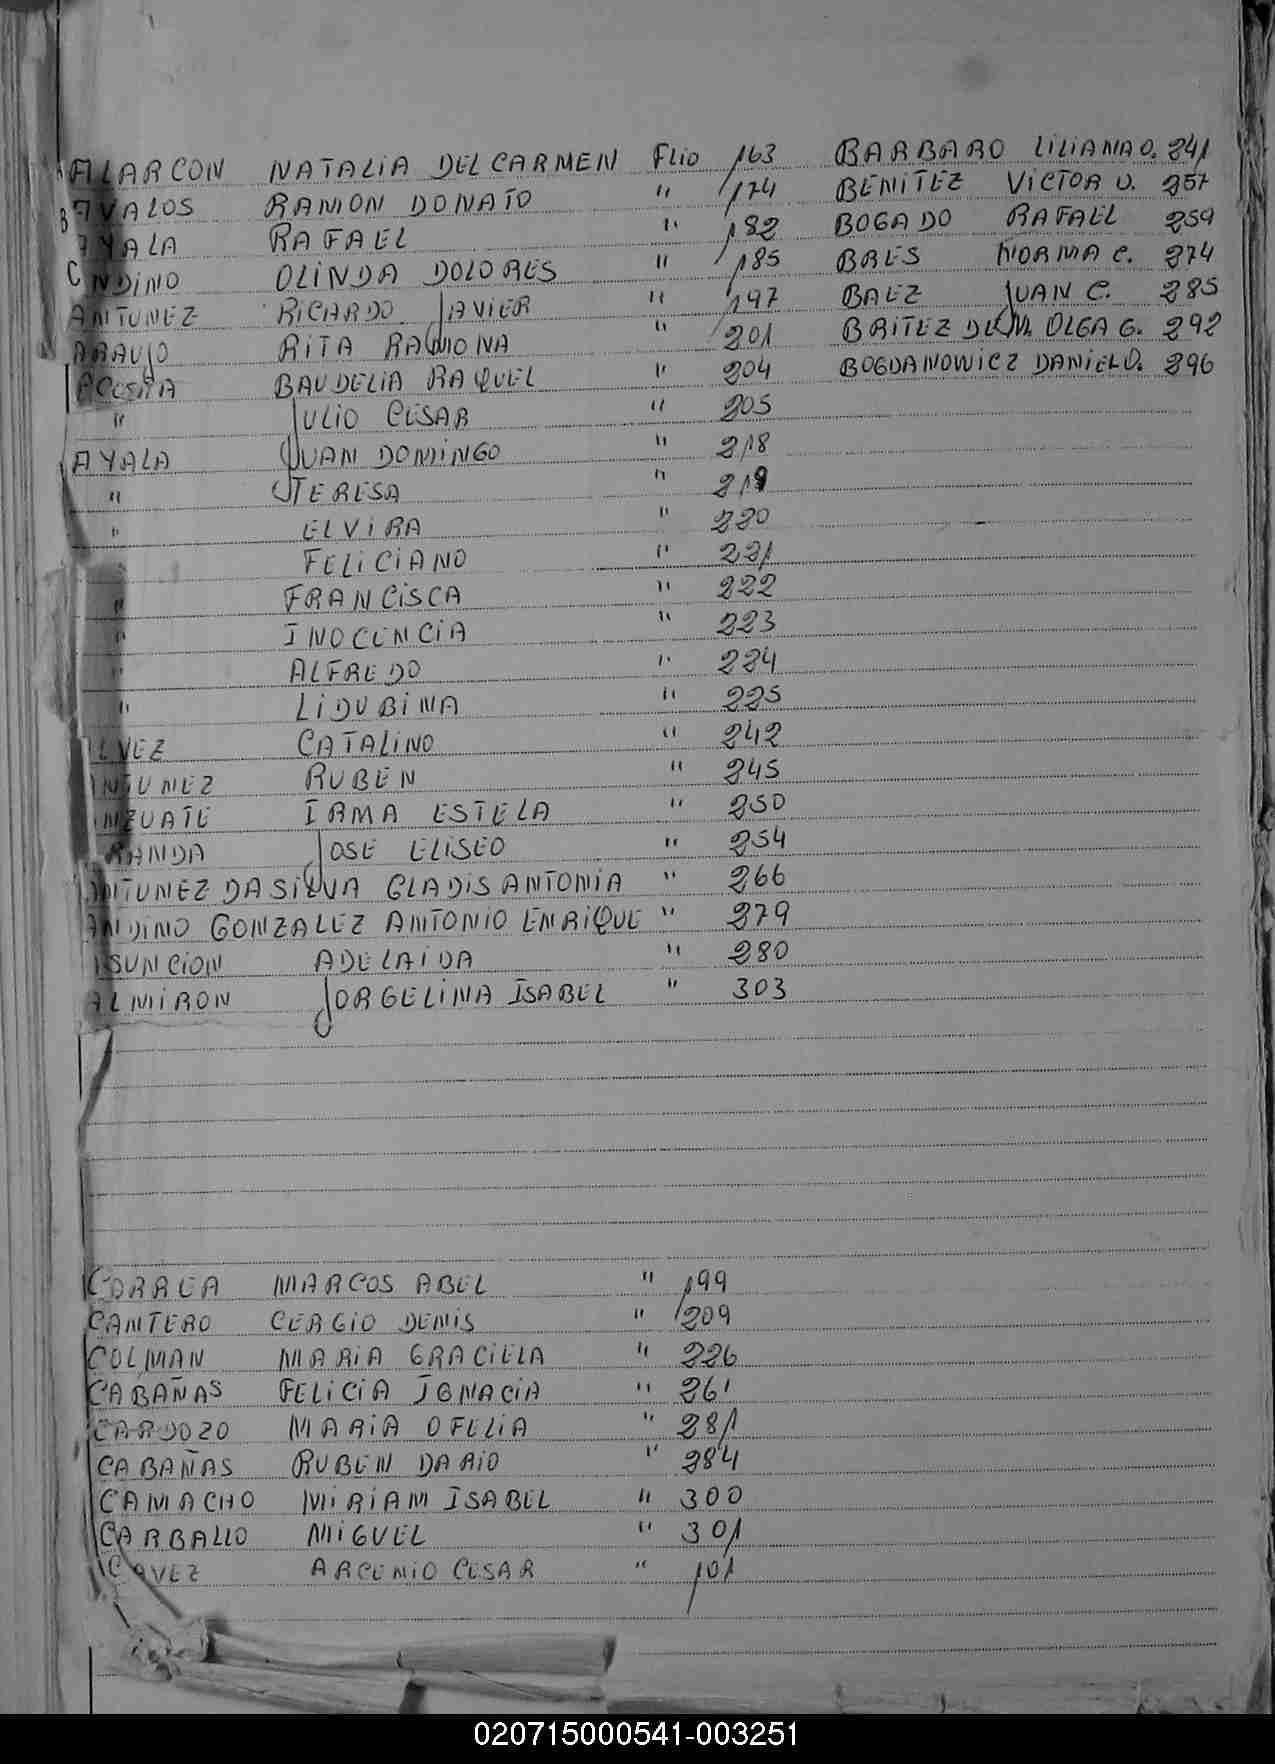 ALARCON NATALIA DEL CARMEN Flio 163 BARBARO LILIANA O. 241
AVALOS RAMON DONATO " 174 BENITEZ VICTOR O. 257
B
AYALA RAFAEL " 182 BOGADO RAFAEL 259
C NDINO OLINDA DOLORES " 185 BAES NORMA C. 274
ANTUNEZ RICARDO JAVIER " 197 BAEZ JUAN C. 285
ARAUJO RITA RAMONA " 201 BRITEZ DE M. OLGA G. 292
ACOSTA BAUDELIA RAQUEL " 204 BOGDANOWICZ DANIEL O. 296
" JULIO CESAR " 205
AYALA JUAN DOMINGO " 218
" TERESA " 219
" ELVIRA " 220
FELICIANO " 221
" FRANCISCA " 222
" INOCENCIA " 223
" ALFREDO " 224
" LIDUBINA " 225
LVEZ CATALINO " 242
NTUNEZ RUBEN " 245
NZUATE IRMA ESTELA " 250
RANDA JOSE ELISEO " 254
ANTUNEZ DA SILVA GLADIS ANTONIA " 266
ANDINO GONZALEZ ANTONIO ENRIQUE " 279
SUNCION ADELAIDA " 280
ALMIRON JORGELINA ISABEL " 303
CORREA MARCOS ABEL " 199
CANTERO CERGIO DENIS " 209
COLMAN MARIA GRACIELA " 226
CABAÑAS FELICIA IGNACIA " 261
CARDOZO MARIA OFELIA " 281
CABAÑAS RUBEN DARIO " 284
CAMACHO MIRIAM ISABEL " 300
CARBALLO MIGUEL " 301
C AVEZ ARCENIO CESAR " 101
020715000541-003251